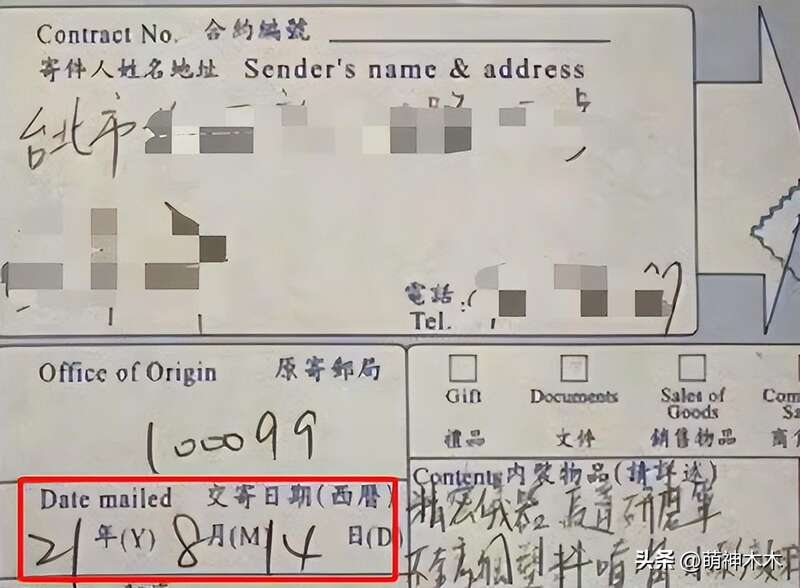 Contract No. 合約編號
寄件人姓名地址 Sender's name & address
台北市
電話:
Tel.
Office of Origin 原寄郵局
100099
Gift
Documents
Sales of
Goods
禮品
文件
銷售物品
Date mailed 交寄日期(西曆)
21 年(Y) 8 月(M) 14 日(D)
Contents 內裝物品(請詳述)
精密儀器
研磨
塑料噴
头条 @萌神木木